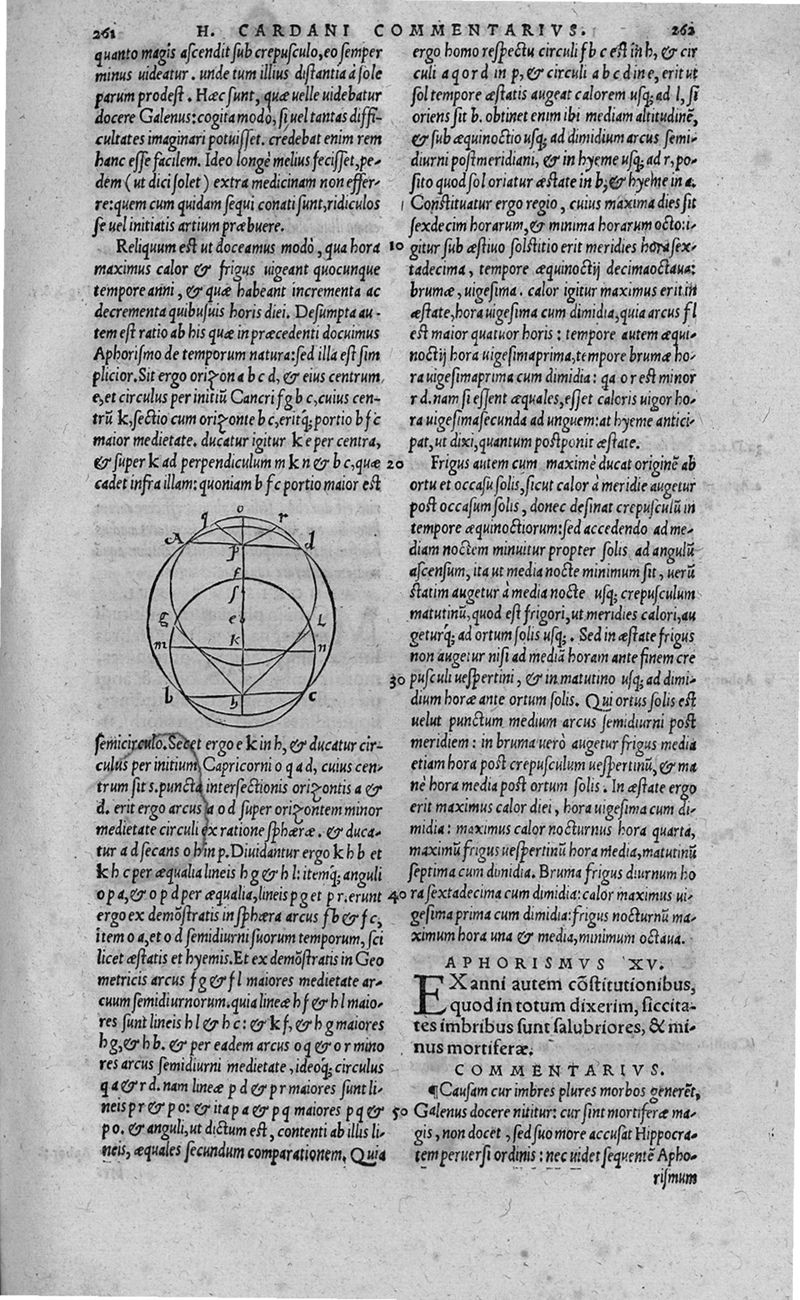 261 H. CARDANI COMMENTARIVS. 262
quanto magis ascendit sub crepusculo, eo semper
minus uideatur. unde tum illius distantia à sole
parum prodest. Hæc sunt, quæ uelle uidebatur
docere Galenus: cogita modò, si uel tantas diffi-
cultates imaginari potuisset. credebat enim rem
hanc esse facilem. Ideo longè melius fecisset, pe-
dem (ut dici solet) extra medicinam non effer-
re: quem cum quidam sequi conati sunt, ridiculos
se uel initiatis artium præbuere.
Reliquum est ut doceamus modò, qua hora
maximus calor & frigus uigeant quocunque
tempore anni, & quæ habeant incrementa ac
decrementa quibusuis horis diei. Desumpta au-
tem est ratio ab his quæ in præcedenti docuimus
Aphorismo de temporum natura: sed illa est sim
plicior. Sit ergo orizon a b c d, & eius centrum
e, et circulus per initiũ Cancri f g b c, cuius cen-
trũ k, sectio cum orizonte b c, eritq; portio b f c
maior medietate. ducatur igitur k e per centra,
& super k ad perpendiculum m k n & b c, quæ
cadet infra illam: quoniam b f c portio maior est
q o r
A p d
f
s
g e L
m k n
b h c
semicirculo. Secet ergo e k in h, & ducatur cir-
culus per initium Capricorni o q a d, cuius cen-
trum sit s. puncta intersectionis orizontis a &
d. erit ergo arcus a o d super orizontem minor
medietate circuli ex ratione sphæræ. & duca-
tur a d secans o h in p. Diuidantur ergo k h b et
k h c per æqualia lineis h g & h l: itemq; anguli
o p a, & o p d per æqualia, lineis p g et p r. erunt
ergo ex demõstratis in sphæra arcus f b & f c,
item o a, et o d semidiurni suorum temporum, sci
licet æstatis et hyemis. Et ex demõstratis in Geo
metricis arcus f g & f l maiores medietate ar-
cuum semidiurnorum. quia lineæ h f & h l maio-
res sunt lineis h l & h c: & k f, & h g maiores
h g, & h b. & per eadem arcus o q & o r mino
res arcus semidiurni medietate, ideoq; circulus
q a & r d. nam lineæ p d & p r maiores sunt li-
neis p r & p o: & ita p a & p q maiores p q &
p o. & anguli, ut dictum est, contenti ab illis li-
neis, æquales secundum comparationem. Quia
ergo homo respectu circuli f b c est in h, & cir
culi a q o r d in p, & circuli a b c d in e, erit ut
sol tempore æstatis augeat calorem usq; ad l, si
oriens sit b. obtinet enim ibi mediam altitudinẽ,
& sub æquinoctio usq; ad dimidium arcus semi-
diurni postmeridiani, & in hyeme usq; ad r, po-
sito quod sol oriatur æstate in b, & hyeme in a.
Constituatur ergo regio, cuius maxima dies sit
sexdecim horarum, & minima horarum octo: i-
10 gitur sub æstiuo solstitio erit meridies hora sex-
tadecima, tempore æquinoctij decimaoctaua:
brumæ, uigesima. calor igitur maximus erit in
æstate, hora uigesima cum dimidia, quia arcus f l
est maior quatuor horis: tempore autem æqui-
noctij hora uigesimaprima, tempore brumæ ho-
ra uigesimaprima cum dimidia: qa o r est minor
r d. nam si essent æquales, esset caloris uigor ho-
ra uigesimasecunda ad unguem: at hyeme antici-
pat, ut dixi, quantum postponit æstate.
20 Frigus autem cum maximè ducat originẽ ab
ortu et occasu solis, sicut calor à meridie augetur
post occasum solis, donec desinat crepusculũ in
tempore æquinoctiorum: sed accedendo ad me-
diam noctem minuitur propter solis ad angulũ
ascensum, ita ut media nocte minimum sit, uerũ
statim augetur à media nocte usq; crepusculum
matutinũ, quod est frigori, ut meridies calori, au
geturq; ad ortum solis usq;. Sed in æstate frigus
non augetur nisi ad mediã horam ante finem cre
30 pusculi uespertini, & in matutino usq; ad dimi-
dium horæ ante ortum solis. Qui ortus solis est
uelut punctum medium arcus semidiurni post
meridiem: in bruma uerò augetur frigus media
etiam hora post crepusculum uespertinũ, & ma
nè hora media post ortum solis. In æstate ergo
erit maximus calor diei, hora uigesima cum di-
midia: maximus calor nocturnus hora quarta,
maximũ frigus uespertinũ hora media, matutinũ
septima cum dimidia. Bruma frigus diurnum ho
40 ra sextadecima cum dimidia: calor maximus ui-
gesima prima cum dimidia: frigus nocturnũ ma-
ximum hora una & media, minimum octaua.
APHORISMVS XV.
EX anni autem cõstitutionibus,
quod in totum dixerim, siccita-
tes imbribus sunt salubriores, & mi-
nus mortiferæ.
COMMENTARIVS.
¶Causam cur imbres plures morbos generẽt,
50 Galenus docere nititur: cur sint mortiferæ ma-
gis, non docet, sed suo more accusat Hippocra-
tem peruersi ordinis: nec uidet sequentẽ Apho-
rismum